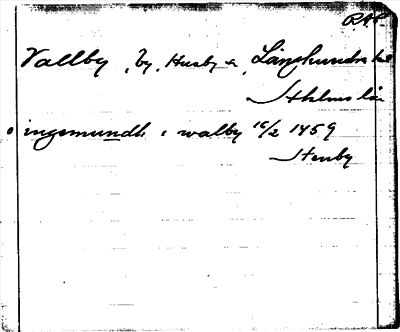 Vallby, by, Husby s, Långhundra hd
Sthlms län
ingemundh i walby 16/2 1459
Stenby